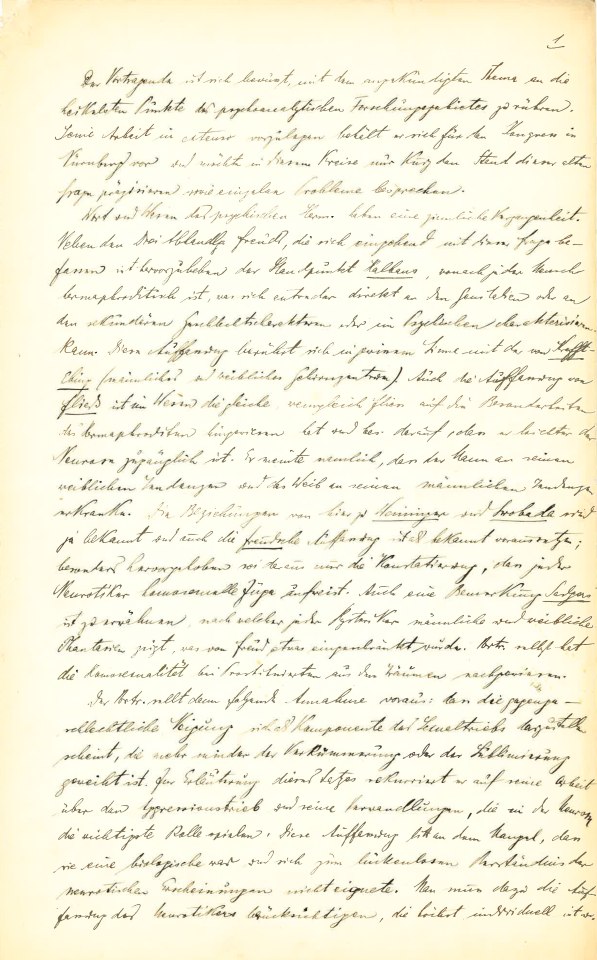 1
Der Vortragende ist sich bewusst, mit dem angekündigten Thema an die
heikelsten Punkte des psychoanalytischen Forschungsgebietes zu rühren.
Seine Arbeit in extenso vorzulegen behält er sich für den Kongress in
Nürnberg vor und möchte in diesem Kreise nur kurz den Stand dieser alten
Frage präzisieren sowie einzelne Probleme besprechen.
Wort und Wesen des psychischen Herm. haben eine ziemliche Vergangenheit.
Neben den Drei Abhandlg Freuds, die sich eingehend mit dieser Frage be-
fassen ist hervorzuheben der Standpunkt Halbans, wonach jeder Mensch
hermaphroditisch ist, was sich entweder direkt an den Genitalien oder an
den sekundären Geschlechtscharakteren oder im Psychischen charakterisieren
kann. Diese Auffassung berührt sich in gewissem Sinne mit der von Krafft-
Ebing (männliches und weibliches Gehirnzentrum). Auch die Auffassung von
Fließ ist im Wesen die gleiche, wenngleich Fliess auf die Besonderheiten
des Hermaphroditen hingewiesen hat und darauf, dass er leichter der
Neurose zugänglich ist. Er meinte nämlich, dass der Mann an seinen
weiblichen Tendenzen und das Weib an seinen männlichen Tendenzen
erkranke. Die Beziehungen von hier zu Weininger und Swoboda sind
ja bekannt und auch die Freudsche Auffassung ist als bekannt vorauszusetzen;
besonders hervorgehoben sei daraus nur die Konstatierung, dass jeder
Neurotiker homosexuelle Züge aufweist. Auch eine Bemerkung Sadgers
ist zu erwähnen, nach welcher jeder Hysteriker männliche und weibliche
Phantasien zeigt, was von Freud etwas eingeschränkt wurde. Vortr. selbst hat
die Homosexualität bei Prostituierten aus den Träumen nachgewiesen.
Der Vortr. stellt dann folgende Annahme voraus: dass die gegenge-
schlechtliche Neigung sich als Komponente des Sexualtriebs darzustellen
scheint, die mehr minder der Verkümmerung oder der Sublimierung
geweiht ist. Zur Erläuterung dieses Satzes rekurriert er auf seine Arbeit
über den Aggressionstrieb und seine Verwandlungen, die in der Neurose
die wichtigste Rolle spielen. Diese Auffassung litt an dem Mangel, dass
sie eine biologische war und sich zum lückenlosen Verständnis der
neurotischen Erscheinungen nicht eignete. Man muss dazu die Auf-
fassung des Neurotikers berücksichtigen, die höchst individuell ist